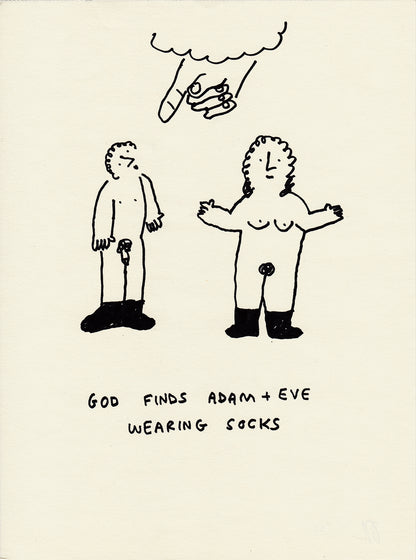 GOD FINDS ADAM + EVE
WEARING SOCKS